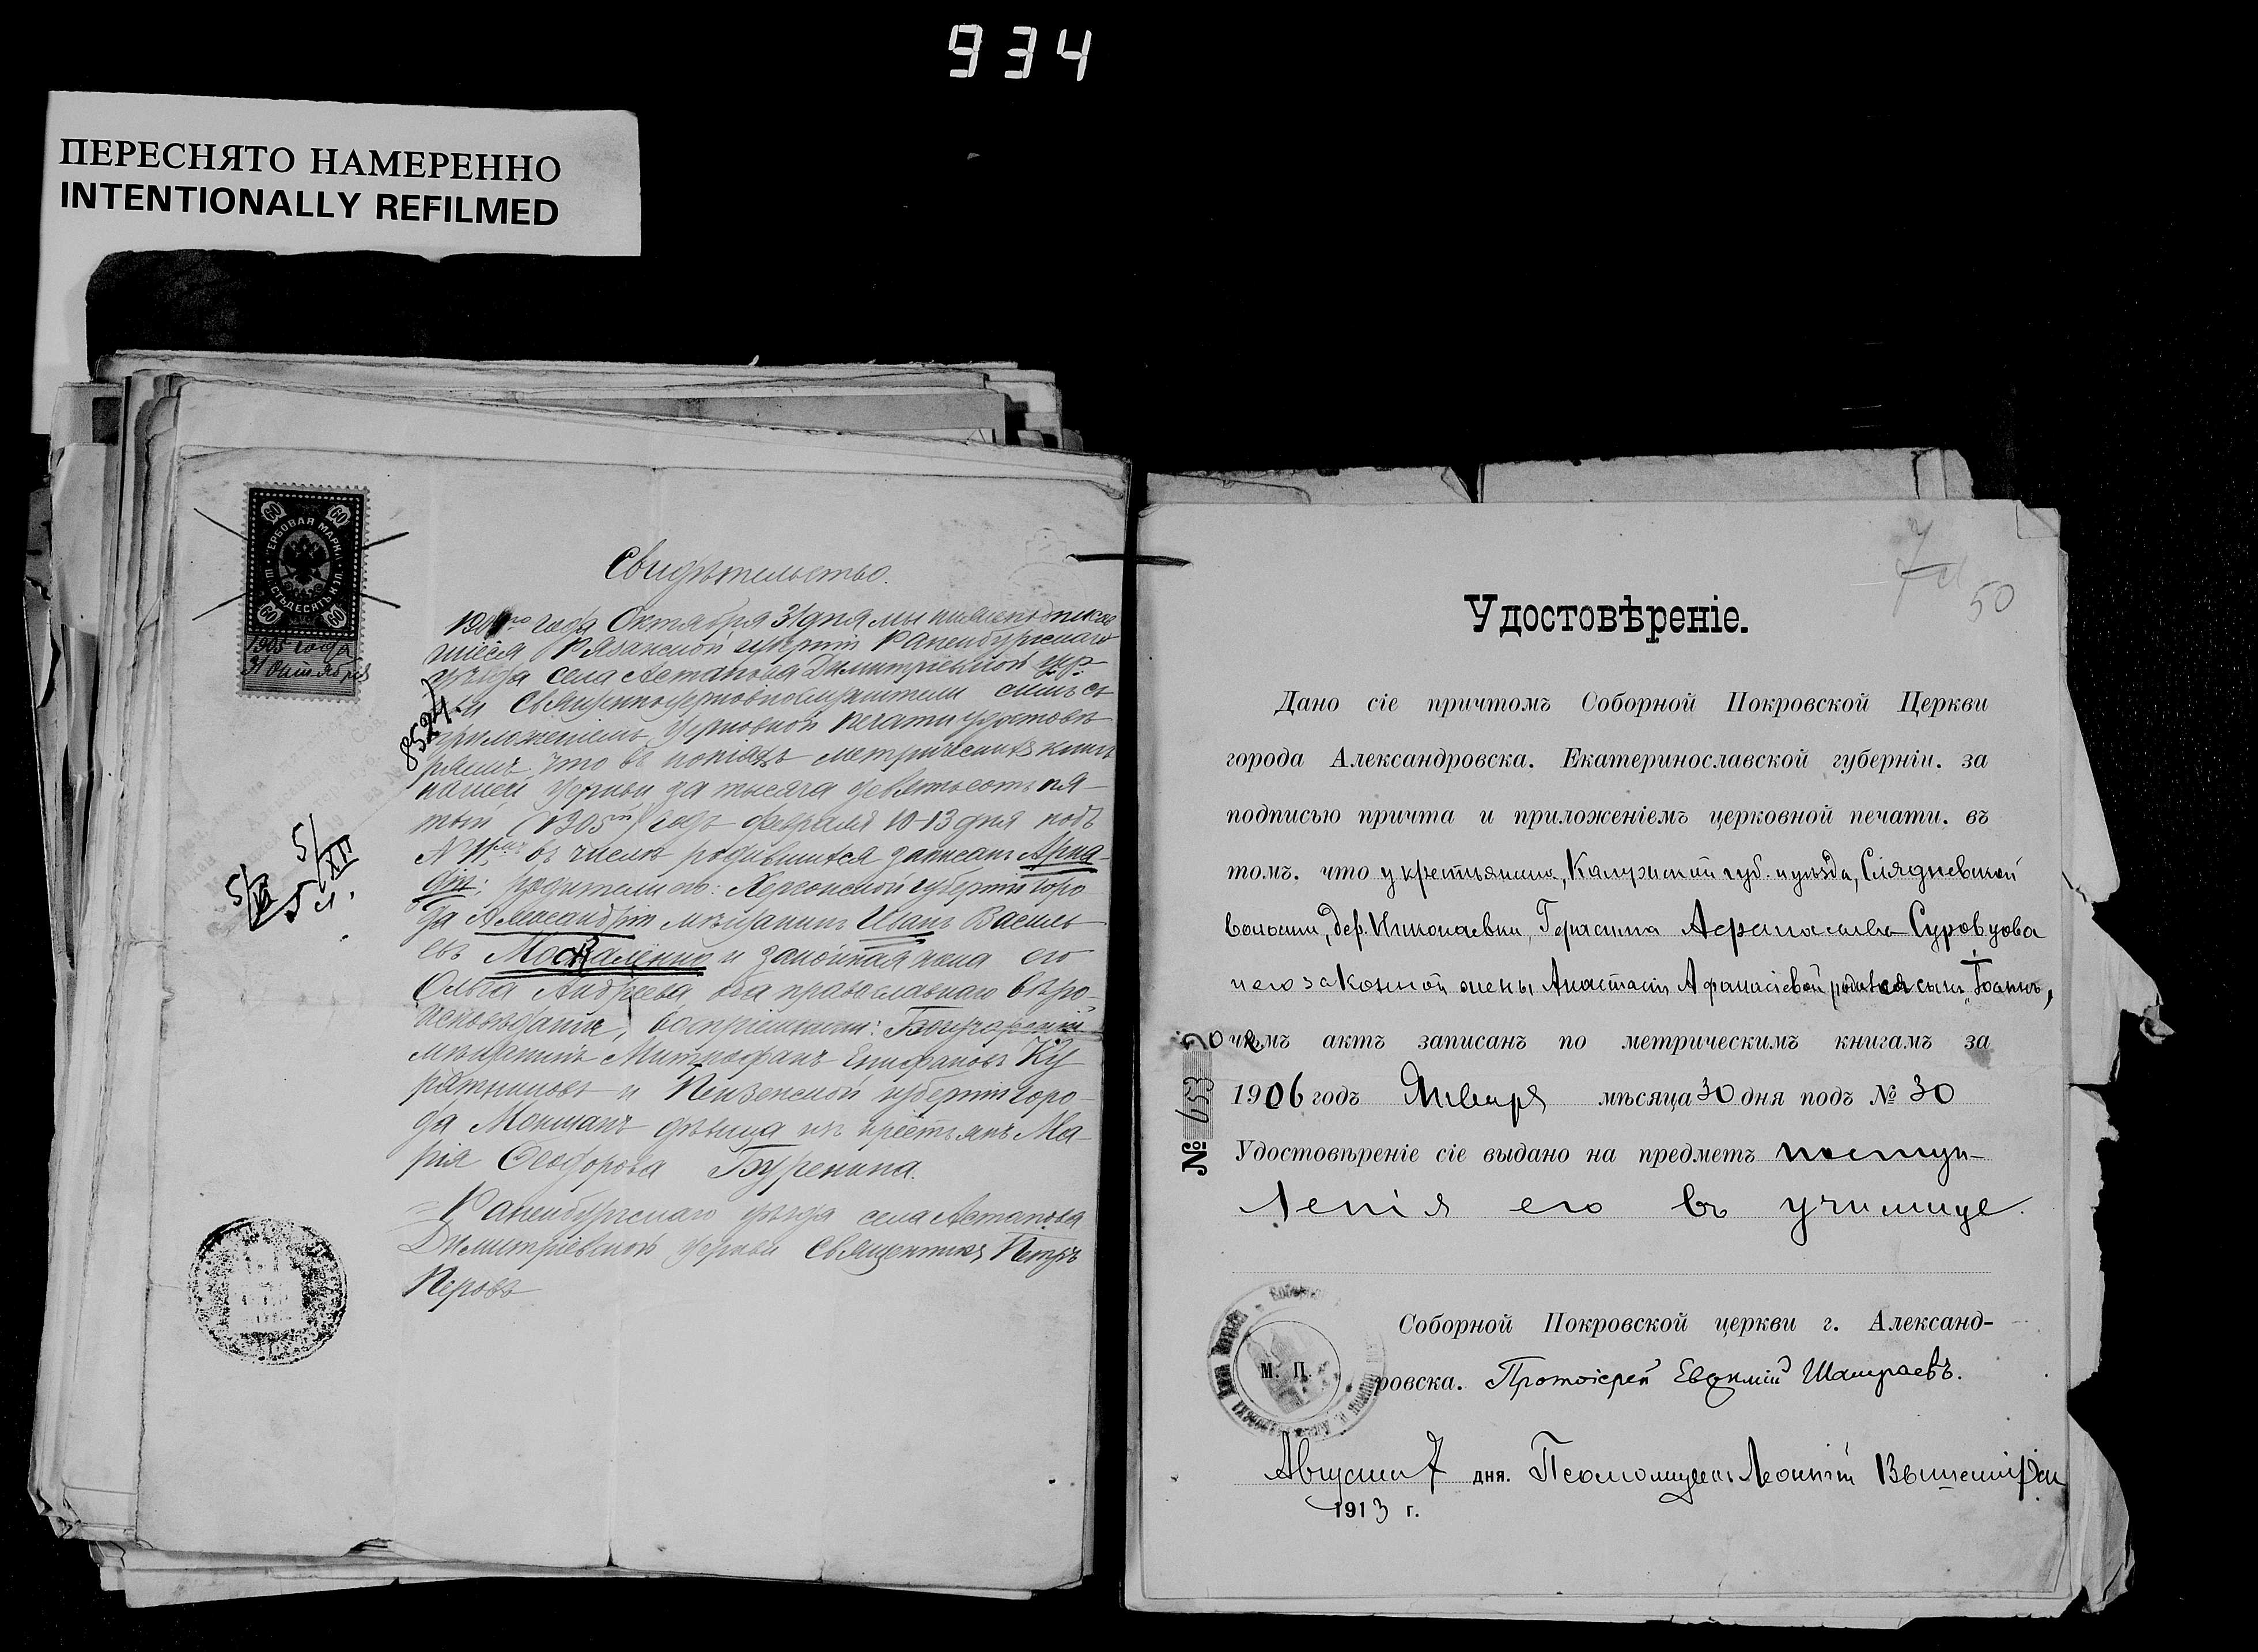 934
ПЕРЕСНЯТО НАМЕРЕННО
INTENTIONALLY REFILMED
ГЕРБОВАЯ МАРКА
ШЕСТЬДЕСЯТЪ КОП.
60 60
60 60
1905 года
31 Октября
8524
5/XII
5/XII
Свидѣтельство.
года Октября 31 дня мы нижеподписав
шіеся Рязанской губерніи Раненбургскаго
уѣзда села Астапова Димитріевской цер-
кви Священноцерковнослужители симъ съ
приложеніемъ церковной печати удостовѣ
ряемъ, что въ копіяхъ метрическихъ книгъ
нашей церкви за тысяча девятьсотъ пя-
тый (1905ый) годъ февраля 10-13 дня подъ
№ 11мъ въ числѣ родившихся записанъ Арка-
дій; родители его: Херсонской губерніи горо
да Александріи мѣщанинъ Иванъ Василь
евъ Москаленко и законная жена его
Ольга Андреева оба православнаго вѣро-
исповѣданія, воспріемники:
мѣщанинъ Митрофанъ Епифановъ Ку
ратниковъ и Пензенской губерніи горо-
да Мокшанъ дѣвица изъ крестьянъ Ма-
рія Ѳеодорова Буренина.
Раненбургскаго уѣзда села Астапова
Димитріевской церкви Священникъ Петръ
Перовъ
50
Удостовѣреніе.
Дано сіе причтомъ Соборной Покровской Церкви
города Александровска, Екатеринославской губерніи, за
подписью причта и приложеніемъ церковной печати, въ
томъ, что у крестьянина, Калужской губ. и уѣзда,
волости, дер. Николаевки, Герасима Аѳанасьева Суровцова
и его законной жены Анастасіи Афанасіевой родился сынъ "Іоаннъ,
о чемъ актъ записанъ по метрическимъ книгамъ за
1906 годъ Января мѣсяца 30 дня подъ № 30
№ 653
Удостовѣреніе сіе выдано на предметъ поступ-
ленія его въ училище.
Соборной Покровской церкви г. Александ-
М. П.
ровска. Протоіерей Евѳимій Шамраевъ.
Августа 7 дня. Псаломщикъ Леонтій
1913 г.